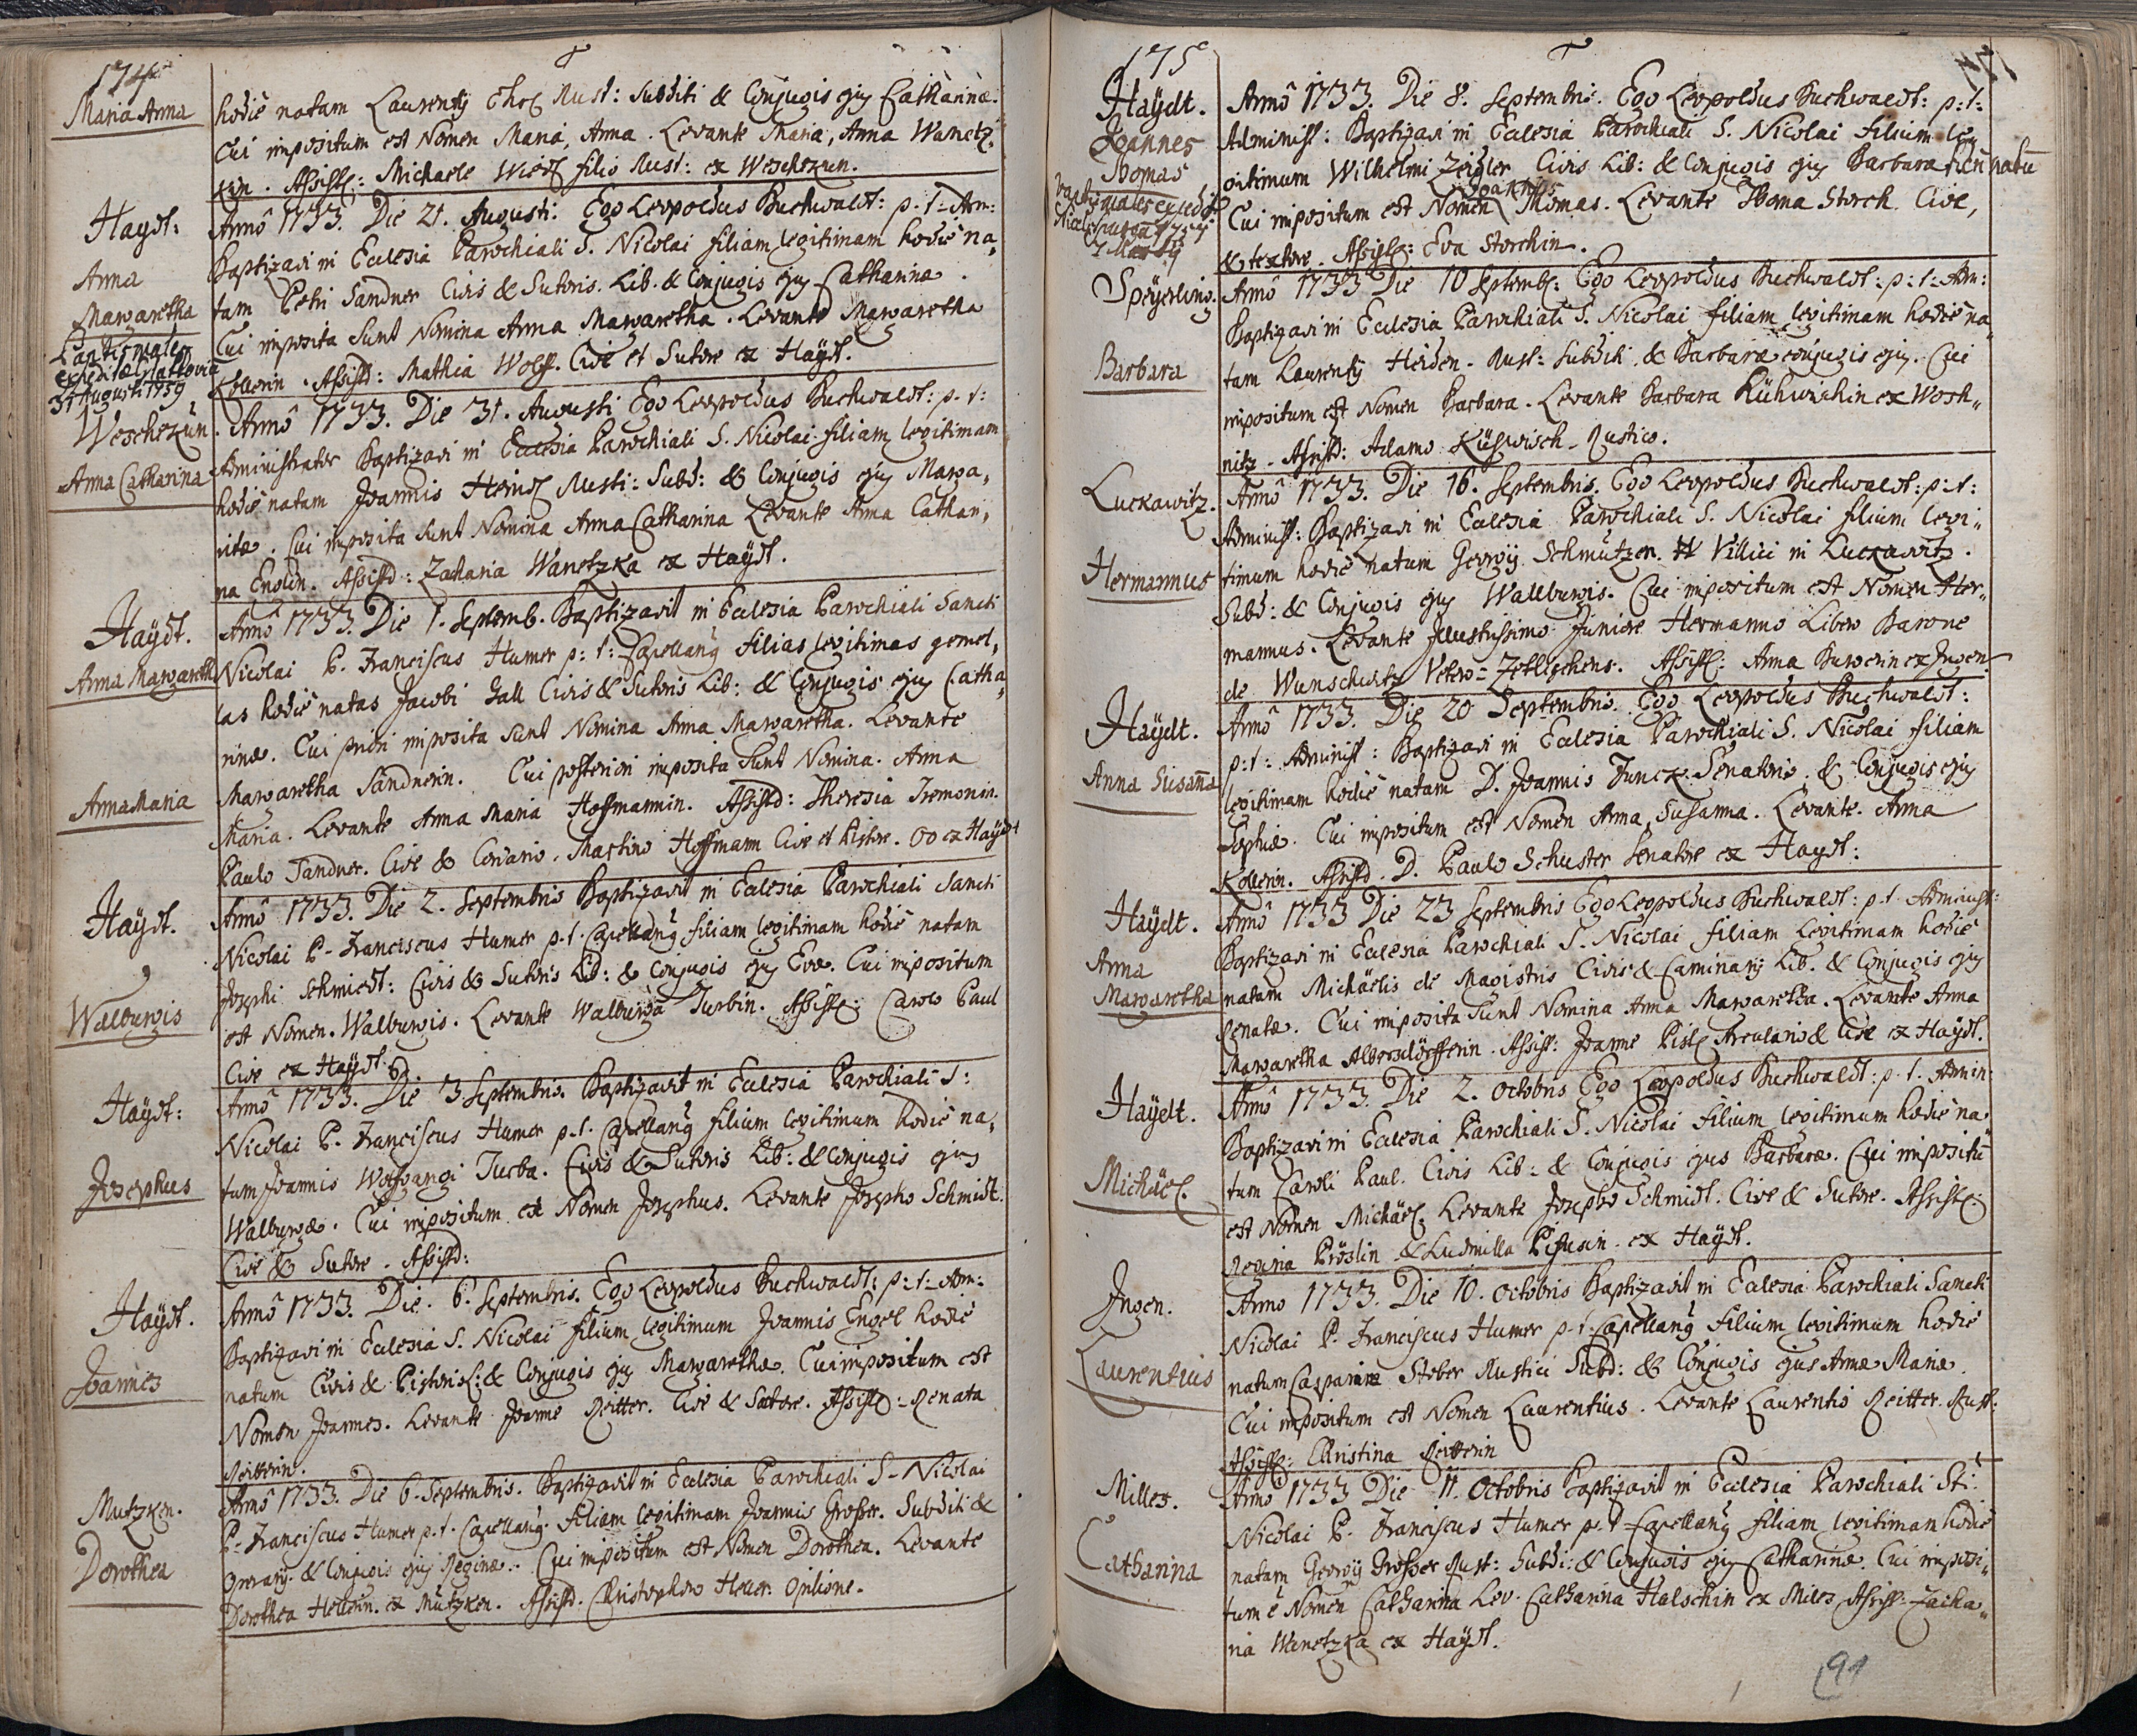 174
Maria Anna
hodiè natam Laurentij Rust: Subditi & Conjugis ejus Catharinæ.
Cui impositum est Nomen Maria, Anna. Levante Maria, Anna Wanetz,
kin. Assistē: Michaele filio Rust: ex Weschekun.
Haÿdt:
Anna
Margaretha
Baptismales
expeditæ
31 Augusti 1759
Annô 1733. Die 21. Augusti. Ego Leopoldus Buchwaldt: p: t: Adm:
Baptizavi in Ecclesia Parochiali S. Nicolai filiam legitimam hodiè na,,
tam Petri Sandner Civis & Sutoris. Lib. & Conjugis ejus Catharinæ.
Cui imposita sunt Nomina Anna Margaretha. Levante Margaretha
Kollerin. Assistē: Mathia Wolff. Cive et Sutore ex Haÿdt.
Weschekun.
Anna Catharina
Annô 1733. Die 31. Augusti Ego Leopoldus Buchwaldt: p. t:
Administrator Baptizavi in Ecclesia Parochiali S. Nicolai filiam legitimam
hodiè natam Joannis Rusti: Subd: & Conjugis ejus Marga,
ritæ. Cui imposita sunt Nomina Anna Catharina Levante Anna Cathari,
na Englin. Assistē: Zacharia Wanetzka ex Haÿdt.
Haÿdt.
Anna Margareth
Anna Maria
Annô 1733. Die 1. Septemb. Baptizavit in Ecclesia Parochiali Sancti
Nicolai P. Franciscus Humer p: t: Capellanus filias legitimas gemel,
las hodiè natas Jacobi Gall Civis & Sutoris Lib: & Conjugis ejus Catha,
rinæ. Cui priori imposita sunt Nomina Anna Margaretha. Levante
Margaretha Sandnerin. Cui posteriori imposita sunt Nomina. Anna
Maria. Levante Anna Maria Hoffmannin. Assistē: Theresia
Paulo Sandner. Cive & Martino Hoffmann Cive et Pistore. OO ex Haÿdt
Haÿdt.
Walburgis
Annô 1733. Die 2. Septembris Baptizavit in Ecclesia Parochiali Sancti
Nicolai P. Franciscus Humer p. t. Capellanus filiam legitimam hodiè natam
Josephi Schmiedt: Civis & Sutoris Lib: & Conjugis ejus Evæ. Cui impositum
est Nomen. Walburgis. Levante Walburga Turbin. Assistē: Carolo Paul
Cive ex Haÿdt.
Haÿdt:
Josephus
Annô 1733. Die 3. Septembris. Baptizavit in Ecclesia Parochiali S:
Nicolai P. Franciscus Humer p. t. Capellanus filium legitimum hodiè na,
tum Joannis Wolfgangi Turba. Civis & Sutoris Lib: & Conjugis ejus
Walburgæ. Cui impositum est Nomen Josephus. Levante Josepho Schmidt.
Cive & Sutore. Assistē:
Haÿdt.
Joannes
Annô 1733. Die. 6. Septembris. Ego Leopoldus Buchwaldt: p: t: Adm:
Baptizavi in Ecclesia S. Nicolai filium legitimum Joannis Engel hodiè
natum Civis & Pistoris: & Conjugis ejus Margarethæ. Cui impositum est
Nomen Joannes. Levante Joanne Reitter. Cive & Sutore. Assistē: Renata
Reitterin.
Mutzken.
Dorothea
Annô 1733. Die 6. Septembris. Baptizavit in Ecclesia Parochiali S. Nicolai
P. Franciscus Humer p. t. Capellanus. filiam legitimam Joannis Grosser. Subditi &
& Conjugis ejus Reginæ. Cui impositum est Nomen Dorothea. Levante
Dorothea Hellerin. ex Mutzken. Assistē. Christophoro Heller Opilione.
175
Haÿdt.
Joannes
Thomas
Baptismales expeditæ
1 Martÿ
Annô 1733. Die 8. Septembris. Ego Leopoldus Buchwaldt: p: t:
Administ: Baptizavi in Ecclesia Parochiali S. Nicolai filium leg,,
gitimum Wilhelmi Zeigler Civis Lib: & Conjugis ejus Barbara natū
Joannes
Cui impositum est Nomen Thomas. Levante Thoma Storch. Cive,
& textore. Assistē: Eva Storchin.
Speÿerling.
Barbara
Annô 1733 Die 10 Septemb: Ego Leopoldus Buchwaldt: p: t: Adm:
Baptizavi in Ecclesia Parochiali S. Nicolai filiam legitimam hodiè na,,
tam Laurentij Heiden. Rust: Subditi & Barbaræ conjugis ejus. Cui
impositum est Nomen Barbara. Levante Barbara Kühwischin ex Wosh,,
nitz. Assistē: Adamo Kühwisch. Rustico.
Luckawitz.
Hermannus
Annô 1733. Die 16. Septembris. Ego Leopoldus Buchwaldt: p: t:
Administ: Baptizavi in Ecclesia Parochiali S. Nicolai filium legi,,
timum hodiè natum Georgij Schmutzer. Villici in Luckawitz.
Subd: & Conjugis ejus Walburgis. Cui impositum est Nomen Her,,
mannus. Levante Illustrissimo Juniore Hermanno Libero Barone
de Wunschwitz Vetero=Zetlischens. Assistē: Anna ex Ingen
Haÿdt.
Anna Susaña
Annô 1733. Die 20 Septembris. Ego Leopoldus Buchwaldt:
p: t: Administ: Baptizavi in Ecclesia Parochiali S. Nicolai filiam
legitimam hodiè natam D. Joannis Funck. Senatoris. & Conjugis ejus
Sophiæ. Cui impositum est Nomen Anna, Susanna. Levante. Anna
Kollerin. Assistē. D. Paulo Schuster Senatore ex Haÿdt:
Haÿdt.
Anna
Margaretha
Annô 1733 Die 23 Septembris Ego Leopoldus Buchwaldt: p. t. Administ:
Baptizavi in Ecclesia Parochiali S. Nicolai filiam legitimam hodiè
natam Michaëlis de Magistris Civis & Caminarij Lib. & Conjugis ejus
Renatæ. Cui imposita sunt Nomina Anna Margaretha. Levante Anna
Margaretha Albersdörfferin. Assist: Joanne Arculario & Cive ex Haÿdt.
Haÿdt.
Michäel.
Annô 1733. Die 2. Octobris Ego Leopoldus Buchwaldt: p. t. Admin:
Baptizavi in Ecclesia Parochiali S. Nicolai filium legitimum hodiè na,
tum Caroli Paul. Civis Lib: & Conjugis ejus Barbaræ. Cui impositū
est Nomen Michäel. Levante Josepho Schmidt. Cive & Sutore. Assistē:
Regina & Ludmilla ex Haÿdt.
Ingen.
Laurentius
Anno 1733. Die 10. Octobris Baptizavit in Ecclesia Parochiali Sancti
Nicolai P. Franciscus Humer p. t. Capellanus filium legitimum hodiè
natum Stöber Rustici Subd: & Conjugis ejus Annæ Mariæ.
Cui impositum est Nomen Laurentius. Levante Laurentio Reitter. Rust:
Assistē: Christina Reitterin
Milles.
Catharina
Annô 1733 Die 11. Octobris Baptizavit in Ecclesia Parochiali Sti:
Nicolai P. Franciscus Humer p. t Capellanus filiam legitimam hodiè
natam Georgij Grosser Rust: Subdi: & Conjugis ejus Catharinæ. Cui imposi,,
tum ē Nomen Catharina Lev. Catharina Halschin ex Miles Assist: Zacha,,
ria Wanetzka ex Haÿdt.
91